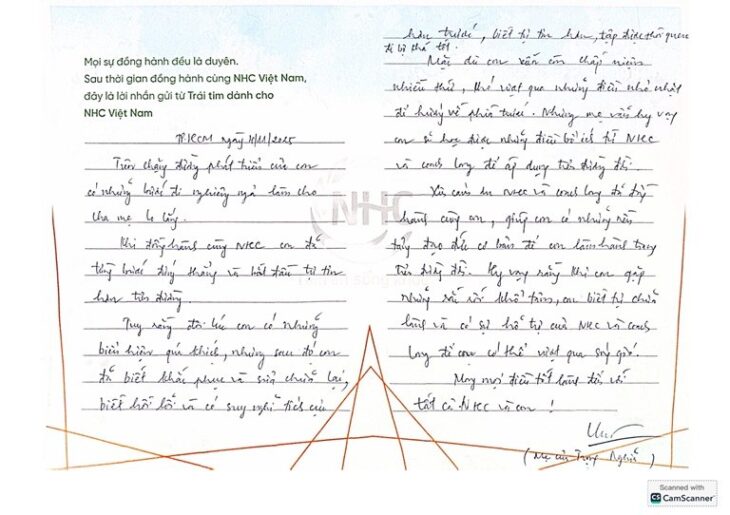 Mọi sự đồng hành đều là duyên.
Sau thời gian đồng hành cùng NHC Việt Nam,
đây là lời nhắn gửi từ Trái tim dành cho
NHC Việt Nam
TP.HCM ngày 11/11/2025
Trên chặng đường phát triển của con
có những bước đi nghiêng ngả làm cho
cha mẹ lo lắng.
Khi đồng hành cùng NHC con đã
từng bước đứng thẳng và bắt đầu tự tin
hơn trên đường.
Tuy rằng đôi lúc con có những
biểu hiện quá khích, nhưng sau đó con
đã biết khắc phục và sửa chữa lại,
biết hối lỗi và có suy nghĩ tích cực
hơn trước, biết tự tin hơn, tập được thói quen
đi bộ thể tốt.
Mặc dù con vẫn còn chấp niệm
nhiều thứ, khó vượt qua những điều nhỏ nhặt
để hướng về phía trước. Nhưng mẹ vẫn hy vọng
con sẽ học được những điều bổ ích từ NHC
và coach Long để áp dụng trên đường đời.
Xin cảm ơn NHC và coach Long đã đồng
hành cùng con, giúp con có những nền
tảng đạo đức cơ bản để con làm hành trang
trên đường đời. Hy vọng rằng khi con gặp
những rắc rối khó khăn, con biết tự chữa
lành và có sự hỗ trợ của NHC và coach
Long để con có thể vượt qua sóng gió.
Mong mọi điều tốt lành đối với
tất cả NHC và con !
(Mẹ của Trọng Nghĩa)
NHC
Scanned with
CS CamScanner